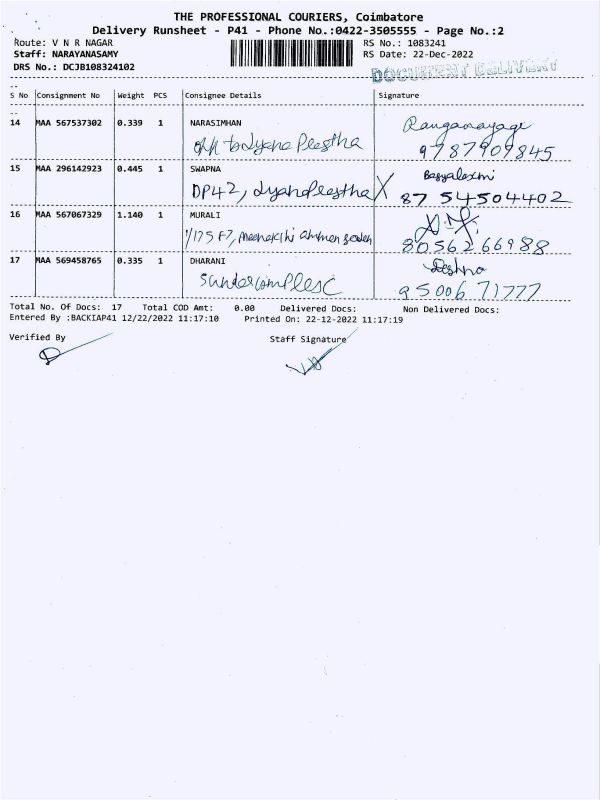 THE PROFESSIONAL COURIERS, Coimbatore
Delivery Runsheet - P41 - Phone No.:0422-3505555 - Page No.:2
Route: V N R NAGAR RS No.: 1083241
Staff: NARAYANASAMY RS Date: 22-Dec-2022
DRS No.: DCJB108324102
DOCUMENT DELIVERY
S No Consignment No Weight PCS Consignee Details Signature
14 MAA 567537302 0.339 1 NARASIMHAN
Ranganayagi
9787909845
15 MAA 296142923 0.445 1 SWAPNA
DP42,
87 54504402
16 MAA 567067329 1.140 1 MURALI
80562 66988
17 MAA 569458765 0.335 1 DHARANI
Sundercomplesc
95006 71777
Total No. Of Docs: 17 Total COD Amt: 0.00 Delivered Docs: Non Delivered Docs:
Entered By :BACKIAP41 12/22/2022 11:17:10 Printed On: 22-12-2022 11:17:19
Verified By Staff Signature